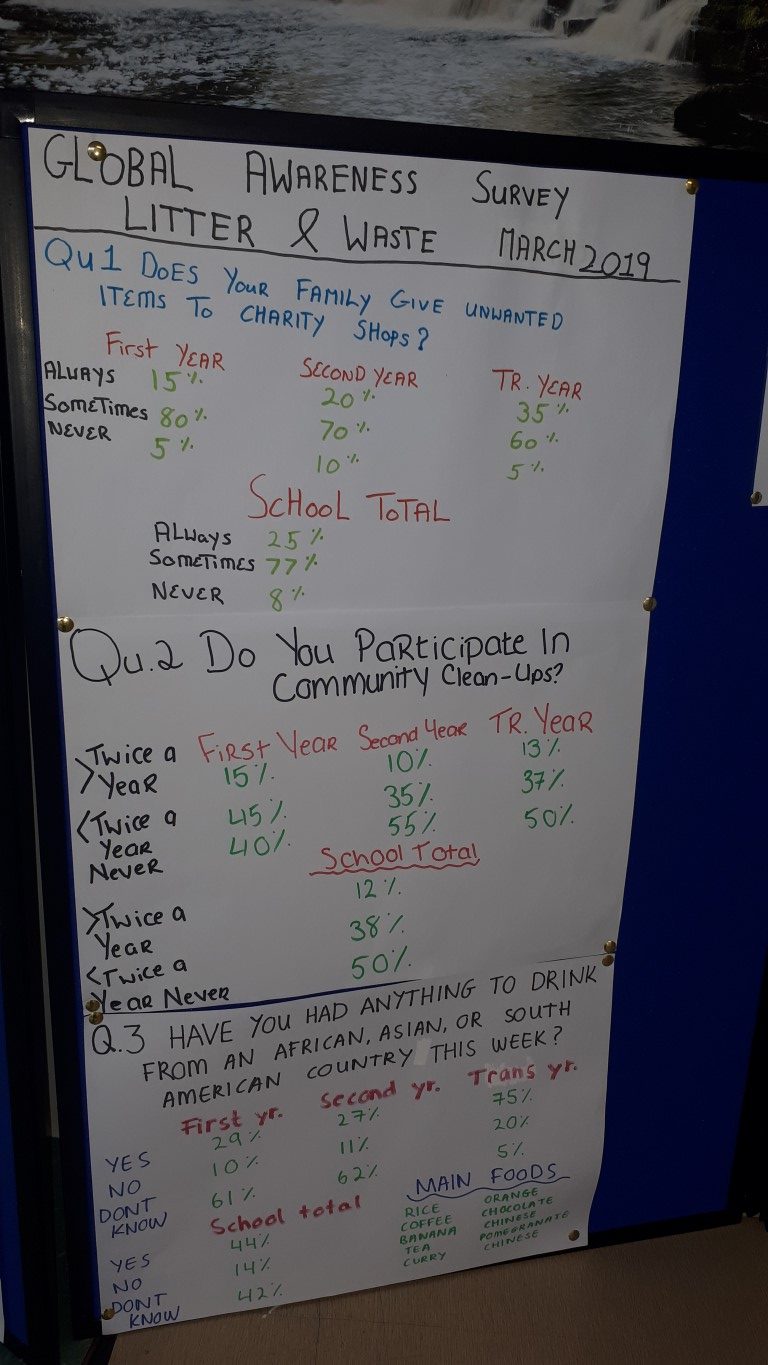 GLOBAL AWARENESS SURVEY
LITTER & WASTE MARCH 2019
Qu1 DOES YOUR FAMILY GIVE UNWANTED
ITEMS TO CHARITY SHOPS?
First YEAR SECOND YEAR TR. YEAR
ALWAYS 15% 20% 35%
SOMETIMES 80% 70% 60%
NEVER 5% 10% 5%
SCHOOL TOTAL
ALWAYS 25%
SOMETIMES 77%
NEVER 8%
Qu.2 Do You Participate In
Community Clean-Ups?
First Year Second Year TR. Year
>Twice a
Year 15% 10% 13%
<Twice a
Year 45% 35% 37%
Never 40% 55% 50%
School Total
>Twice a
Year 12%
<Twice a 38%
Year Never 50%
Q.3 HAVE YOU HAD ANYTHING TO DRINK
FROM AN AFRICAN, ASIAN, OR SOUTH
AMERICAN COUNTRY THIS WEEK?
First yr. Second yr. Trans yr.
YES 29% 27% 75%
NO 10% 11% 20%
DONT
KNOW 61% 62% 5%
School total
YES 44%
NO 14%
DONT
KNOW 42%
MAIN FOODS
RICE ORANGE
COFFEE CHOCOLATE
BANANA CHINESE
TEA POMEGRANATE
CURRY CHINESE